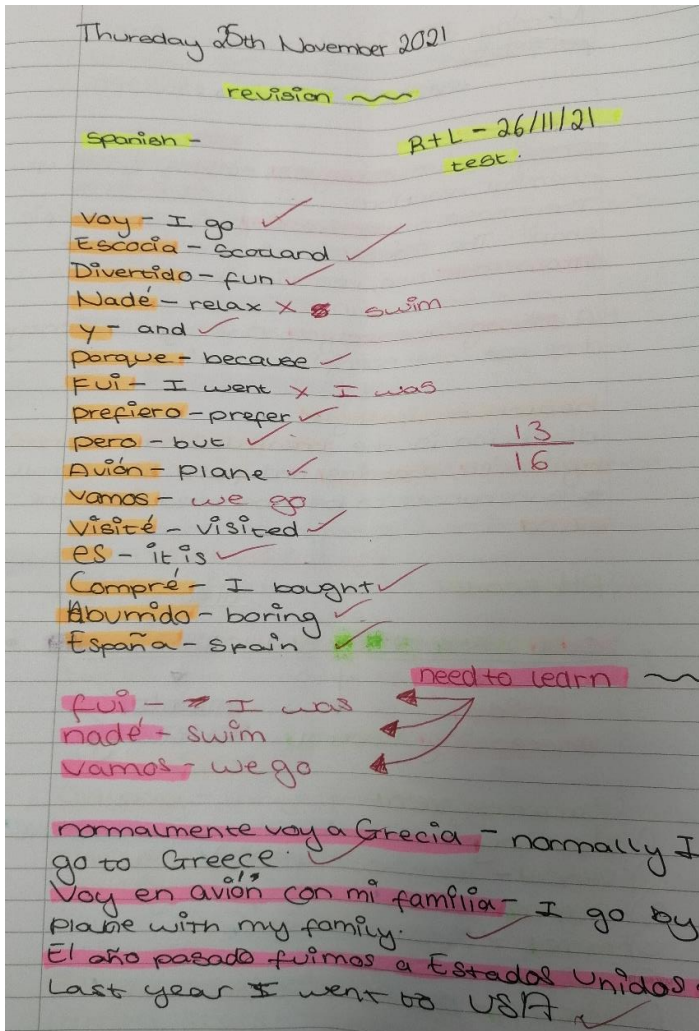 Thursday 25th November 2021
revision
Spanish -
R+L - 26/11/21
test.
Voy - I go ✓
Escocia - Scotland ✓
Divertido - fun ✓
Nadé - relax x swim
y - and ✓
porque - because ✓
Fui - I went x I was
prefiero - prefer ✓
pero - but ✓
13
16
Avión - plane ✓
vamos - we go
Visité - visited ✓
es - it is ✓
Compré - I bought ✓
Aburrido - boring ✓
España - Spain ✓
need to learn
fui - I was
nadé - swim
vamos - we go
normalmente voy a Grecia - normally I
go to Greece. ✓
Voy en avión con mi familia - I go by
plane with my family. ✓
El año pasado fuimos a Estados Unidos -
Last year I went to USA ✓